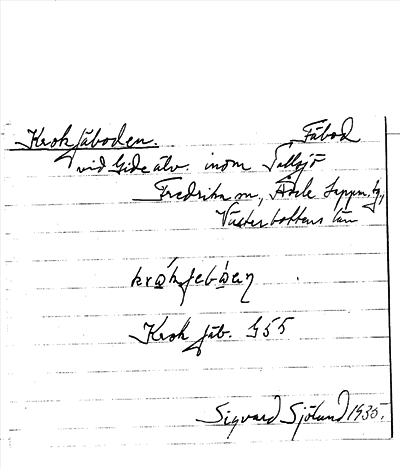 Krokfäboden. Fäbod
vid Gide älv. inom Tallsjö
Fredrika sn, Åsele Lappm. tg,
Västerbottens län
krokfeboen
Krokfäb. G55
Sigvard Sjölund 1935.